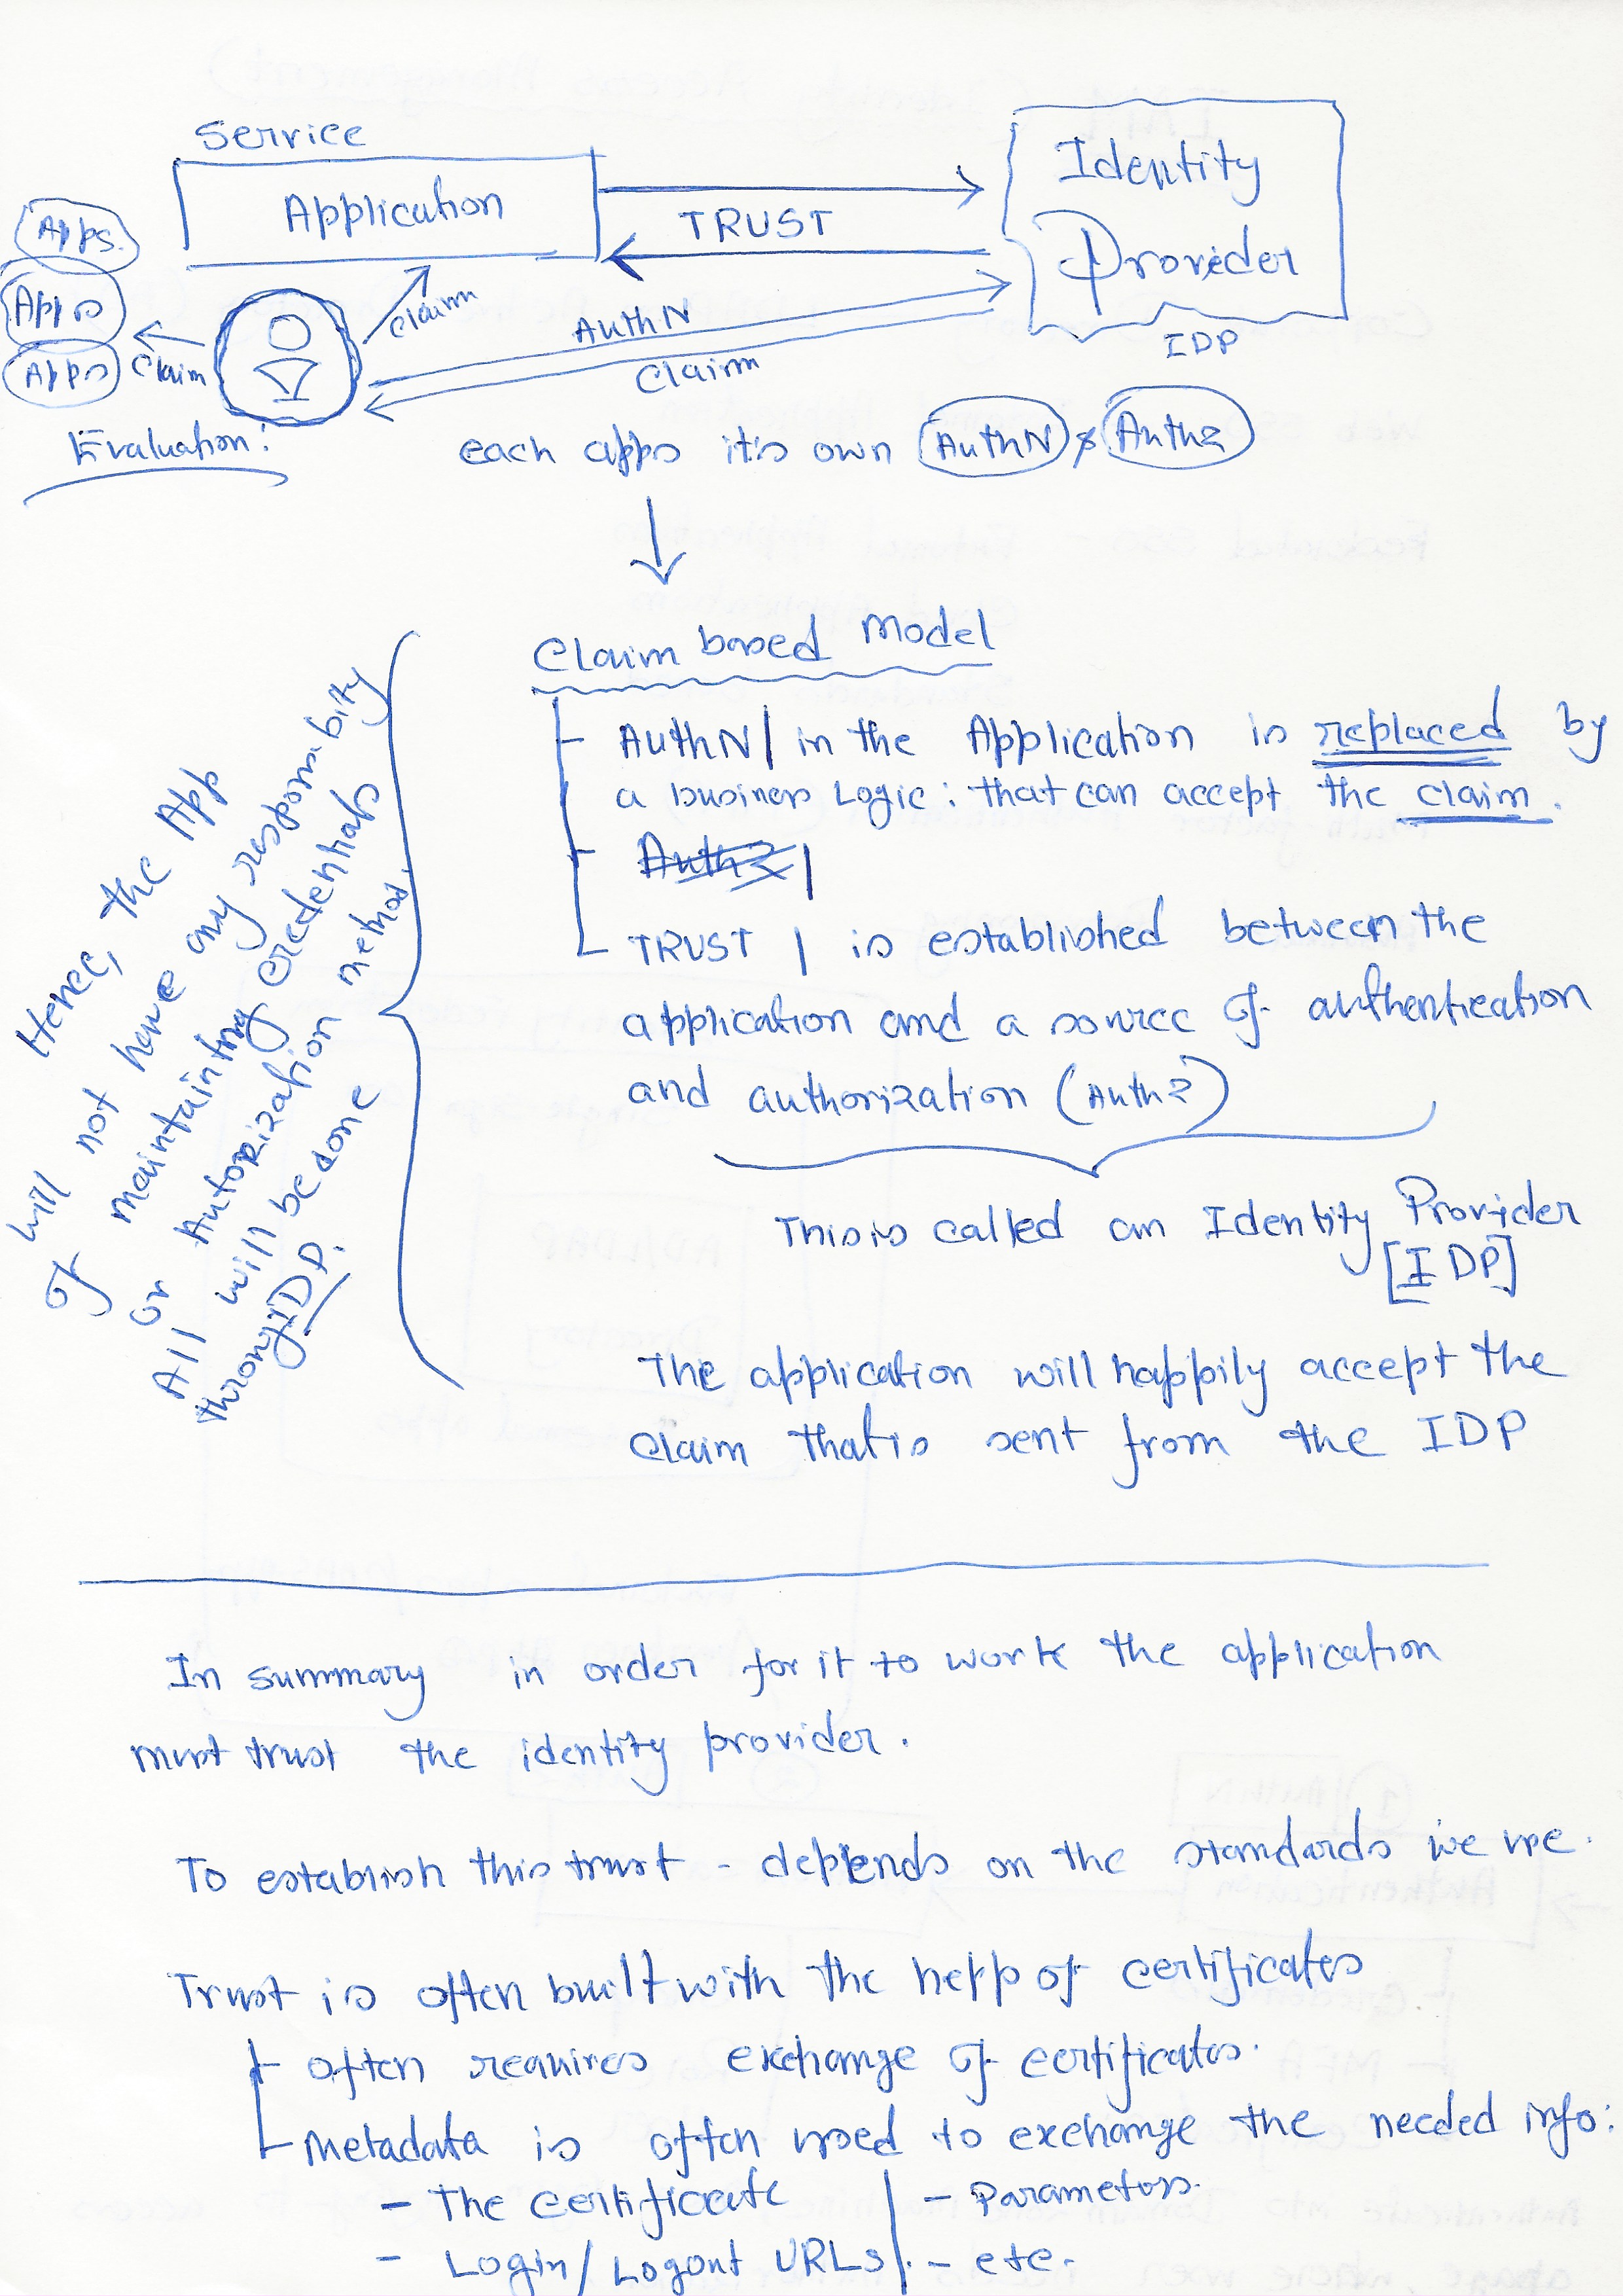 Service
Application
TRUST
Identity
Provider
IDP
Apps.
Apps
Apps
Claim
Claim
AuthN
Claim
Evaluation:
each apps it's own AuthN & AuthZ
Claim based Model
AuthN | in the Application is replaced by
a business Logic : that can accept the claim.
AuthZ |
TRUST | is established between the
application and a source of authentication
and authorization (AuthZ)
This is called an Identity Provider
[IDP]
The application will happily accept the
claim that is sent from the IDP
Hence, the App
will not have any responsibility
of maintaining credentials
or Autorization method.
All will be done
throug IDP.
In summary in order for it to work the application
must trust the identity provider.
To establish this trust - depends on the standards we use.
Trust is often built with the help of certificates
often requires exchange of certificates.
Metadata is often used to exchange the needed info:
- The certificate | - Parameters.
- Login/Logout URLs | - etc.